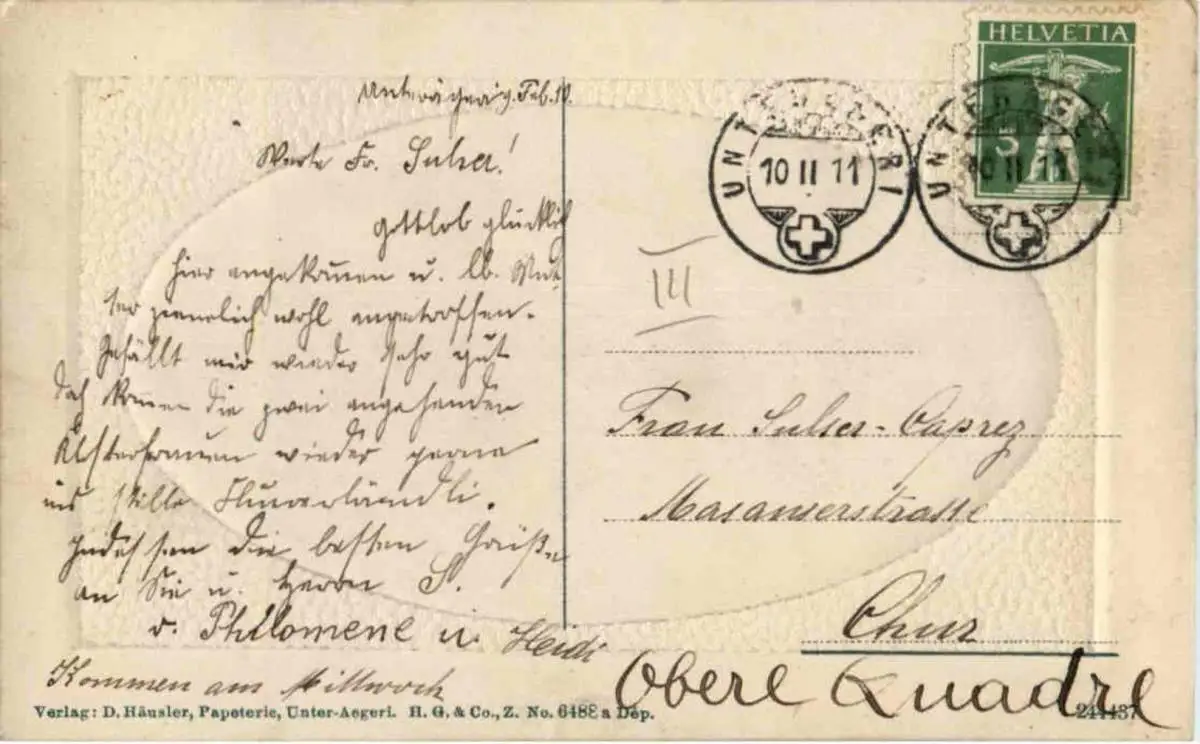 HELVETIA
5
UNTERÄGERI
10 II 11
UNTERÄGERI
10 II 11
Unterägeri 9. Feb. 10.
Werte Fr. Sulser!
Gottlob glücklich
hier angekommen u. lb. Mut
ter ziemlich wohl angetroffen.
Gefällt mir wieder sehr gut
doch kommen die zwei angehenden
Klosterfrauen wieder gerne
ins stille
Indessen die besten Grüße
an Sie u. Herrn S.
v. Philomene u. Heidi
Kommen am Mittwoch
III
Frau Sulser-Caprez
Masanserstrasse
Chur
Obere Quadre
Verlag: D. Häusler, Papeterie, Unter-Aegeri. H. G. & Co., Z. No. 6488 a Dép.
244437